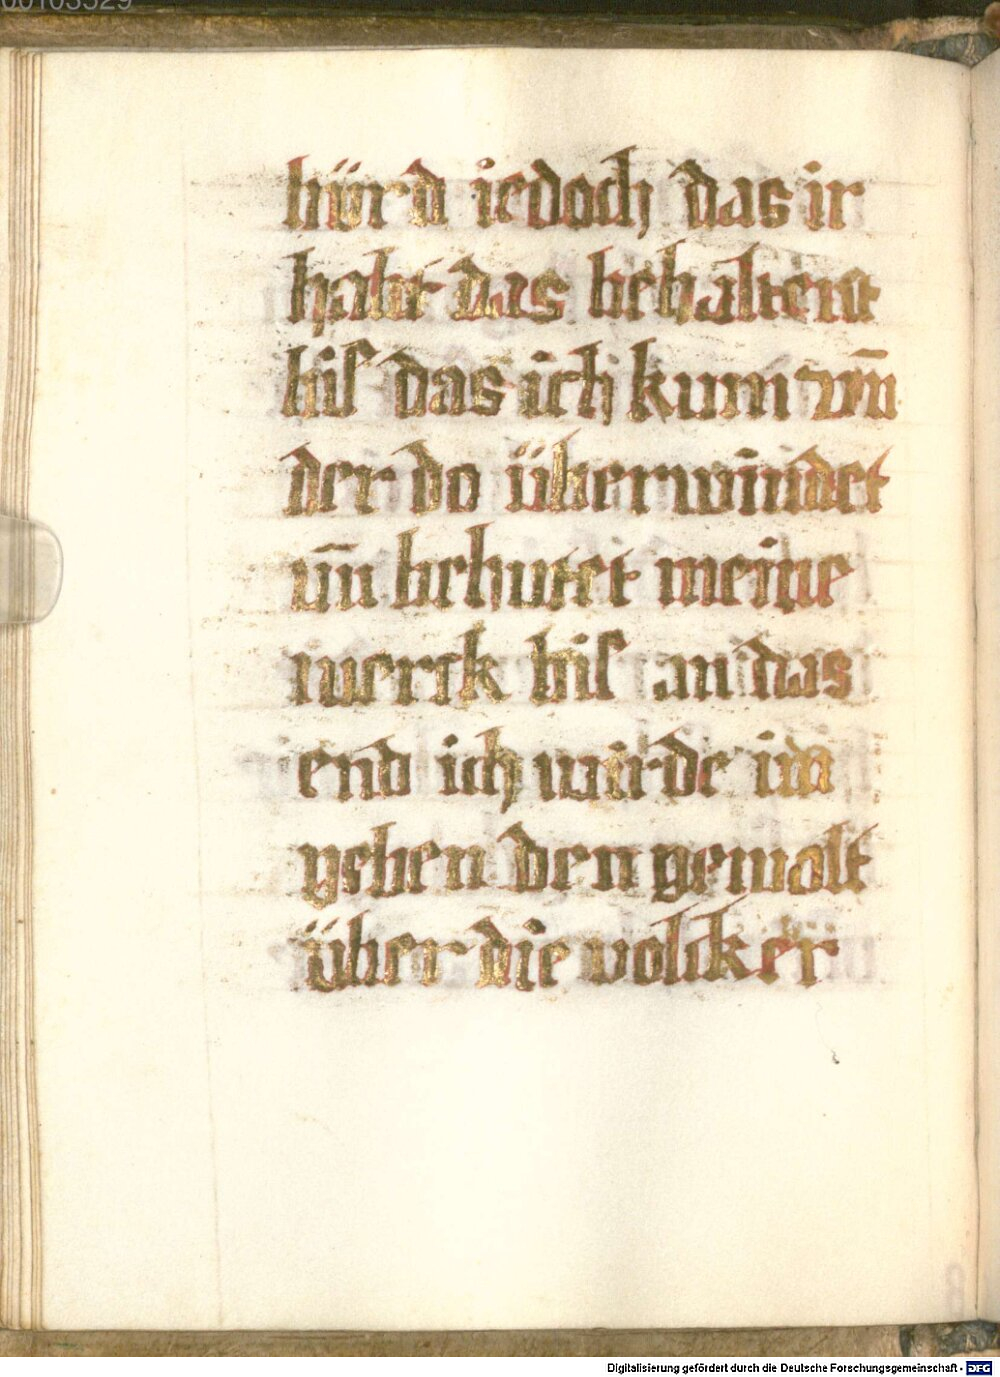 00103529
bürd iedoch das ir
habt das behaltent
bis das ich kum vn̄
der do überwindet
vn̄ behutet meine
werck bis an das
end ich würde im
geben den gewalt
über die volcker
Digitalisierung gefördert durch die Deutsche Forschungsgemeinschaft - DFG